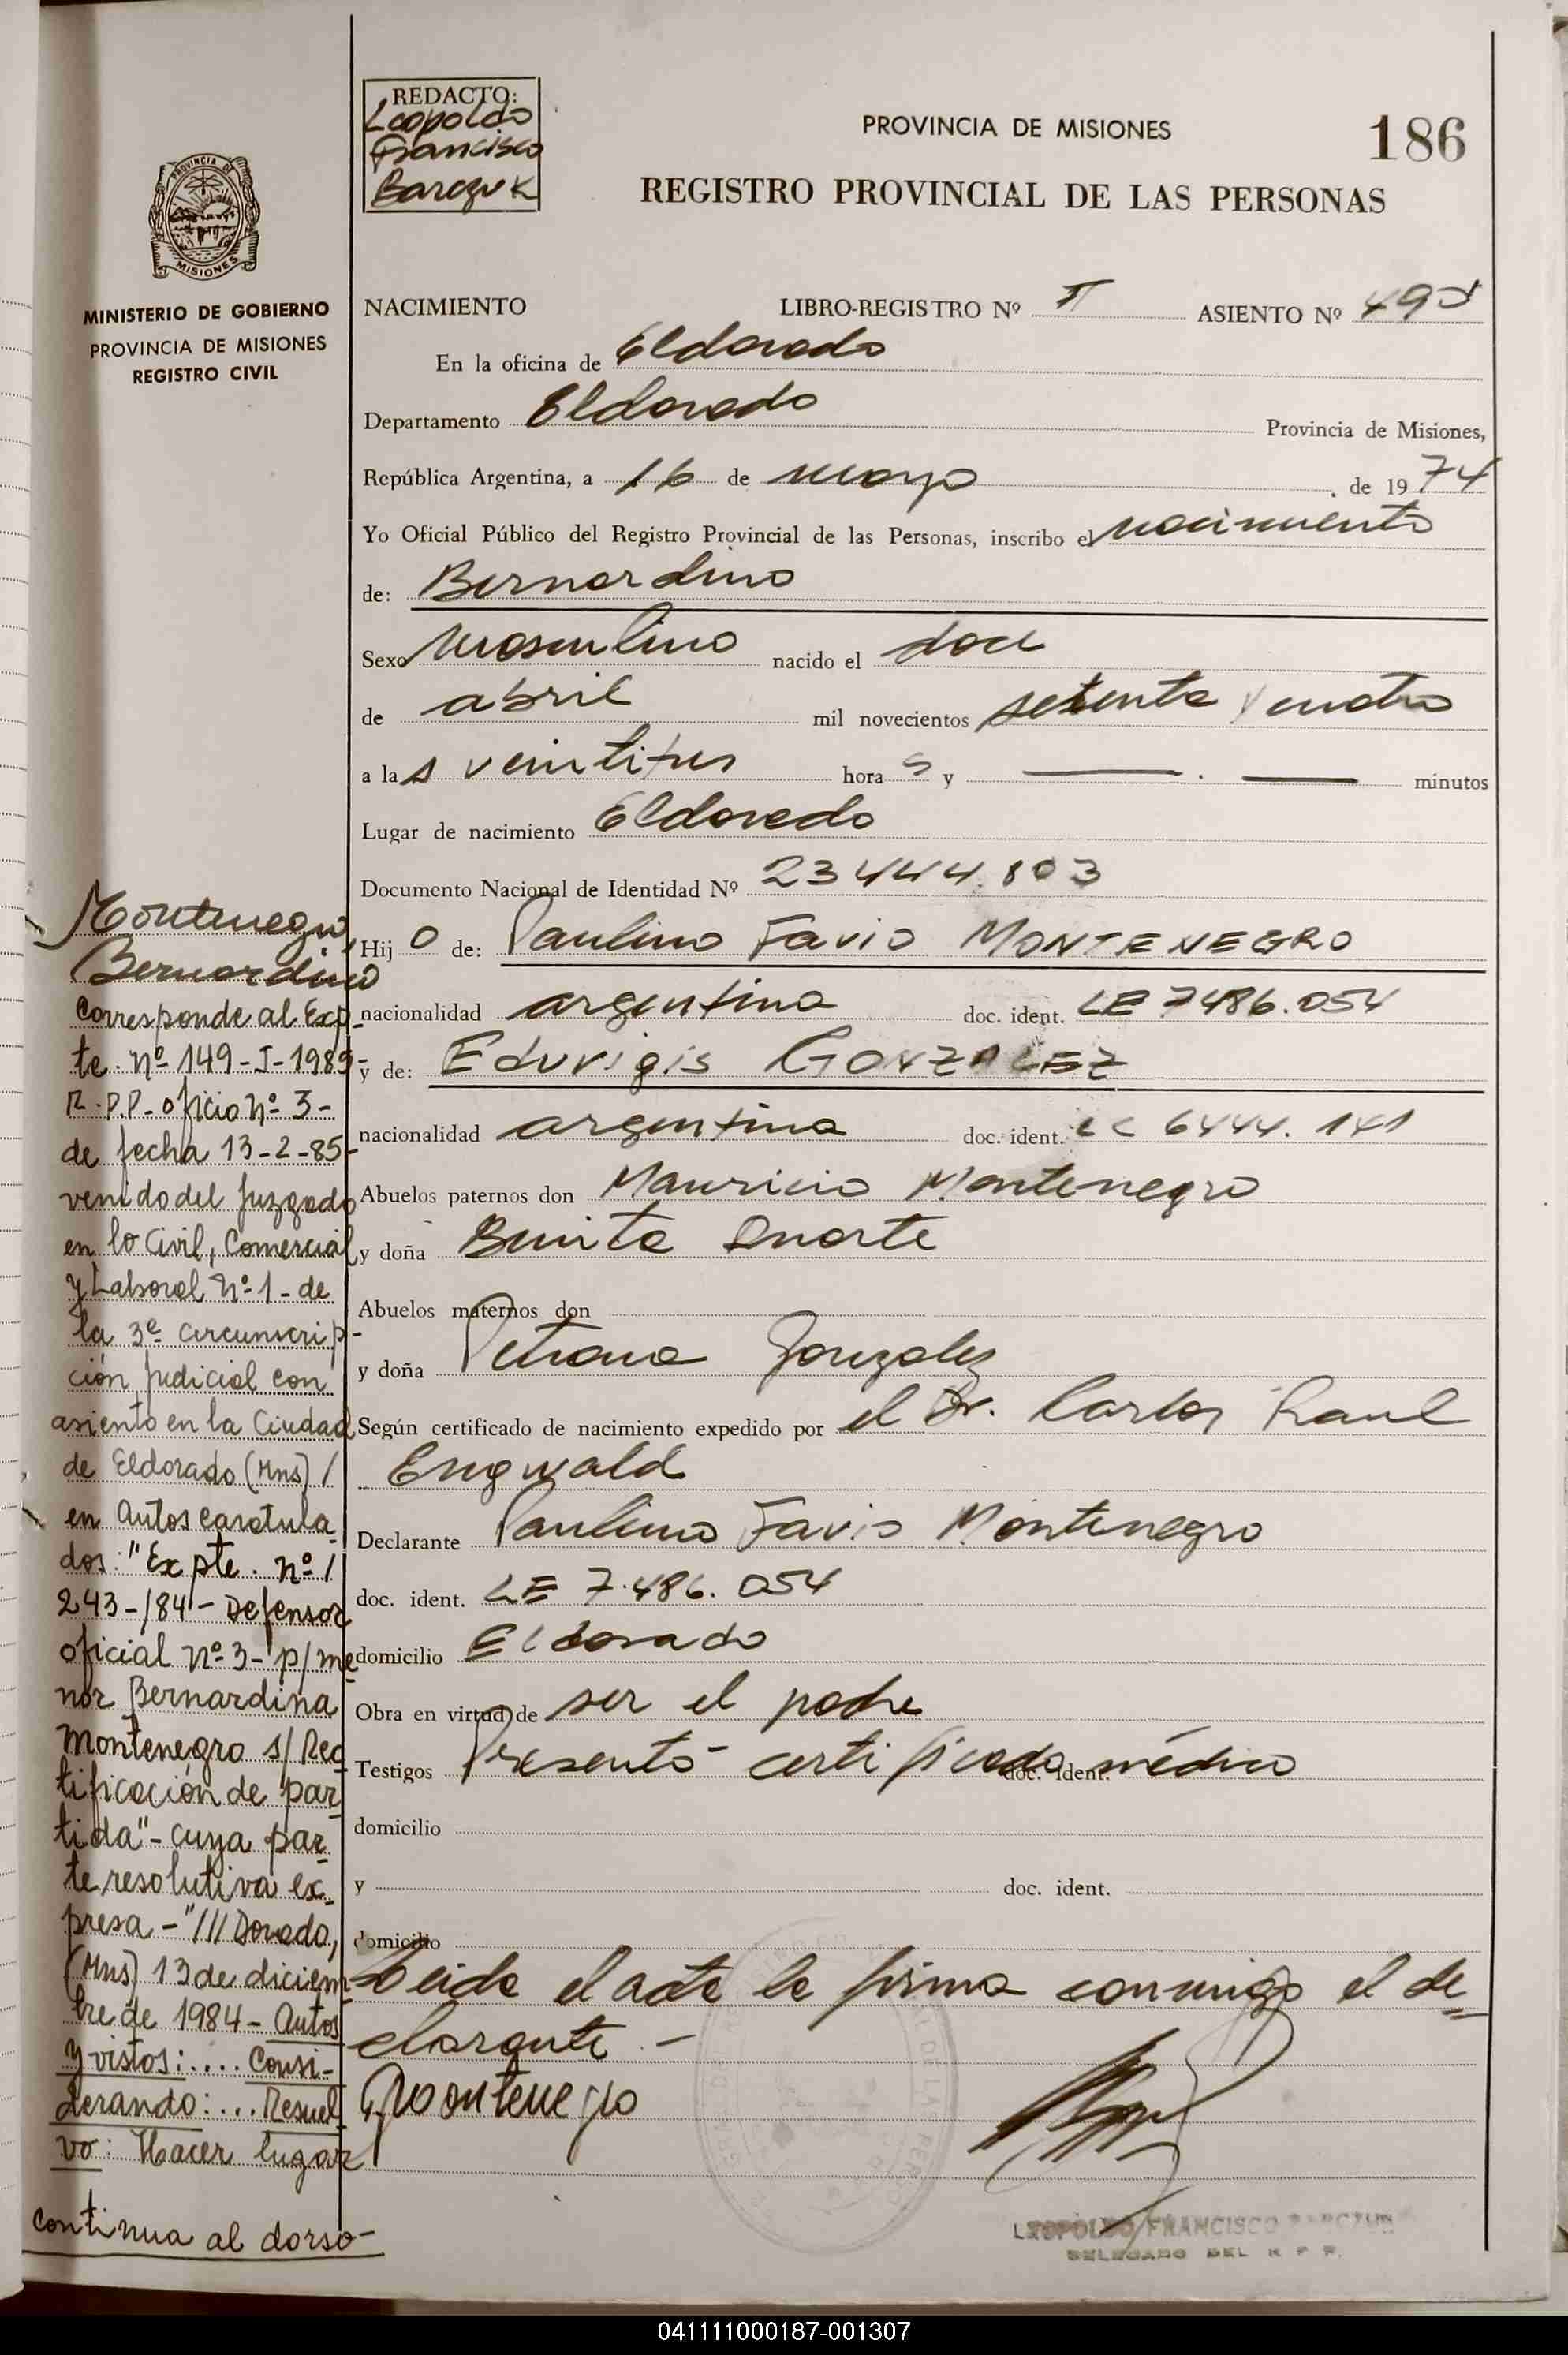 REDACTO:
Leopoldo
Francisco
Barczuk
PROVINCIA DE MISIONES
186
REGISTRO PROVINCIAL DE LAS PERSONAS
PROVINCIA DE
MISIONES
MINISTERIO DE GOBIERNO
PROVINCIA DE MISIONES
REGISTRO CIVIL
NACIMIENTO LIBRO-REGISTRO Nº II ASIENTO Nº
En la oficina de Eldorado
Departamento Eldorado Provincia de Misiones,
República Argentina, a 16 de mayo de 1974
Yo Oficial Público del Registro Provincial de las Personas, inscribo el nacimiento
de: Bernardino
Sexo Masculino nacido el doce
de abril mil novecientos setenta y cuatro
a las veintitres horas y — . — minutos
Lugar de nacimiento Eldorado
Documento Nacional de Identidad Nº 23444.803
Hijo de: Paulino Favio MONTENEGRO
nacionalidad argentina doc. ident. LE 7486.054
y de: Eduvigis GONZALEZ
nacionalidad argentina doc. ident. LC 6444.141
Abuelos paternos don Mauricio Montenegro
y doña Benita Duarte
Abuelos maternos don
y doña Petrona Gonzalez
Según certificado de nacimiento expedido por el Dr. Carlos Raul
Engwald
Declarante Paulino Favio Montenegro
doc. ident. LE 7.486.054
domicilio Eldorado
Obra en virtud de ser el padre
Testigos Presentó certificado médico doc. ident.
domicilio
y doc. ident.
domicilio
Leida el acta la firma conmigo el de=
clarante.-
Montenegro
LEOPOLDO FRANCISCO BARCZUK
DELEGADO DEL R P P.
Montenegro,
Bernardino
Corresponde al Exp-
te. nº 149-I-1985-
R.P.P- oficio nº 3-
de fecha 13-2-85-
venido del Juzgado
en lo Civil, Comercial
y Laboral Nº 1- de
la 3ª circunscrip-
ción Judicial con
asiento en la Ciudad
de Eldorado (Mns) /
en Autos caratula_
dos: "Expte. nº /
243-/84- Defensor
oficial nº 3- p/me
nor Bernardina
Montenegro s/ Rec
tificación de par_
tida"- cuya par_
te resolutiva ex_
presa -"///Dorado,
(Mns) 13 de diciem_
bre de 1984- Autos
y vistos:.... Consi-
derando:... Resuel_
vo: Hacer lugar
continua al dorso-
041111000187-001307